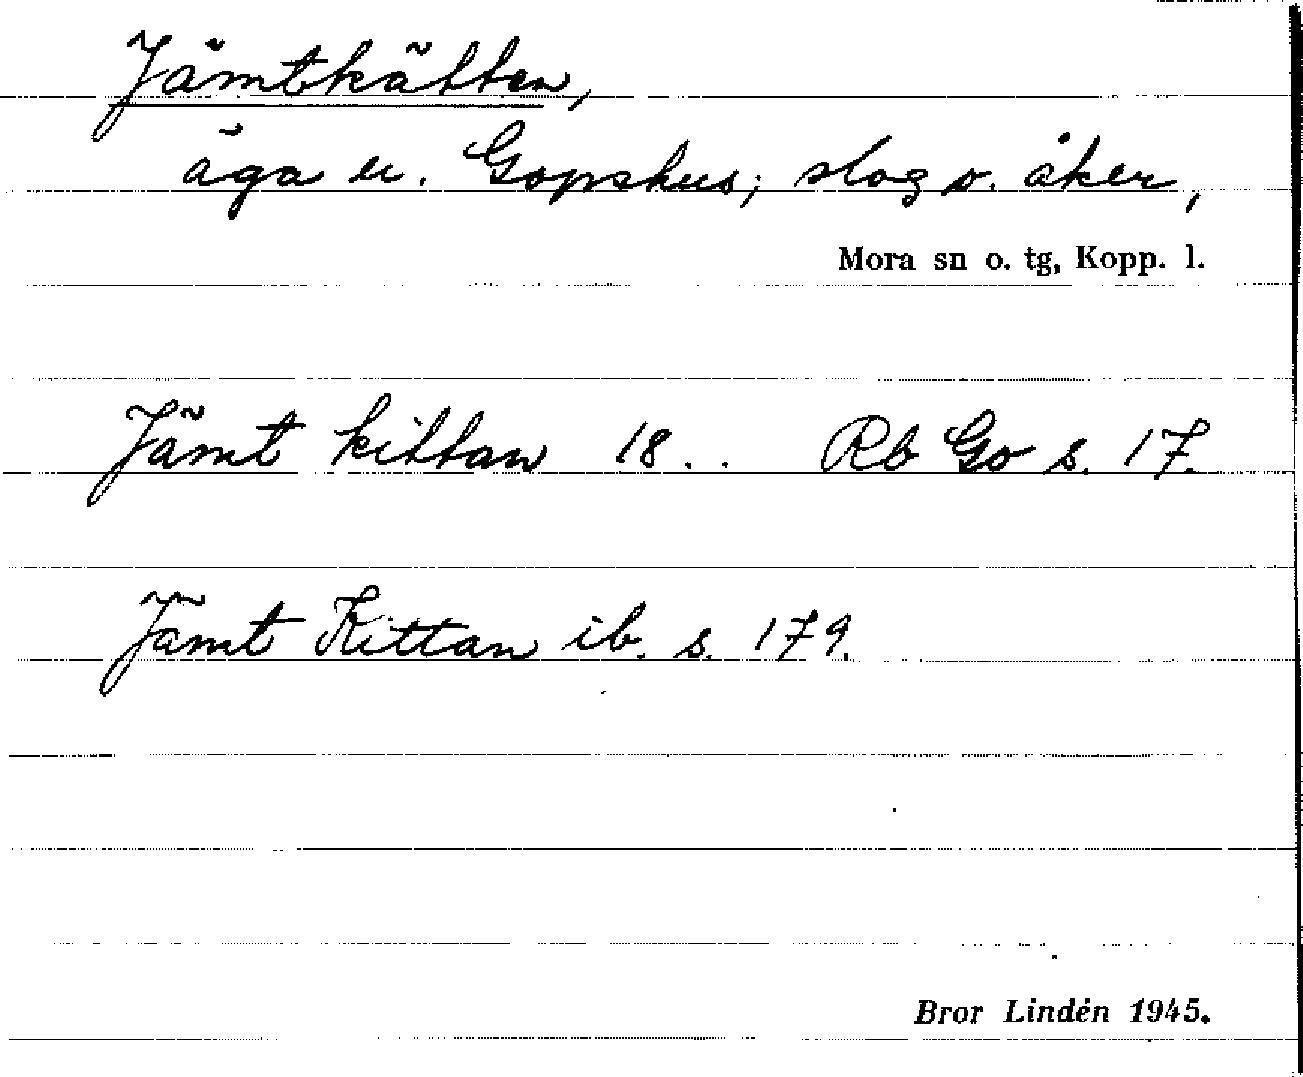 Jämtkätten,
äga u. Gopshus; slog o. åker,
Mora sn o. tg, Kopp. l.
Jämt kittan 18. . Rb Go s. 17.
Jämt Kittan ib. s. 179.
Bror Lindén 1945.